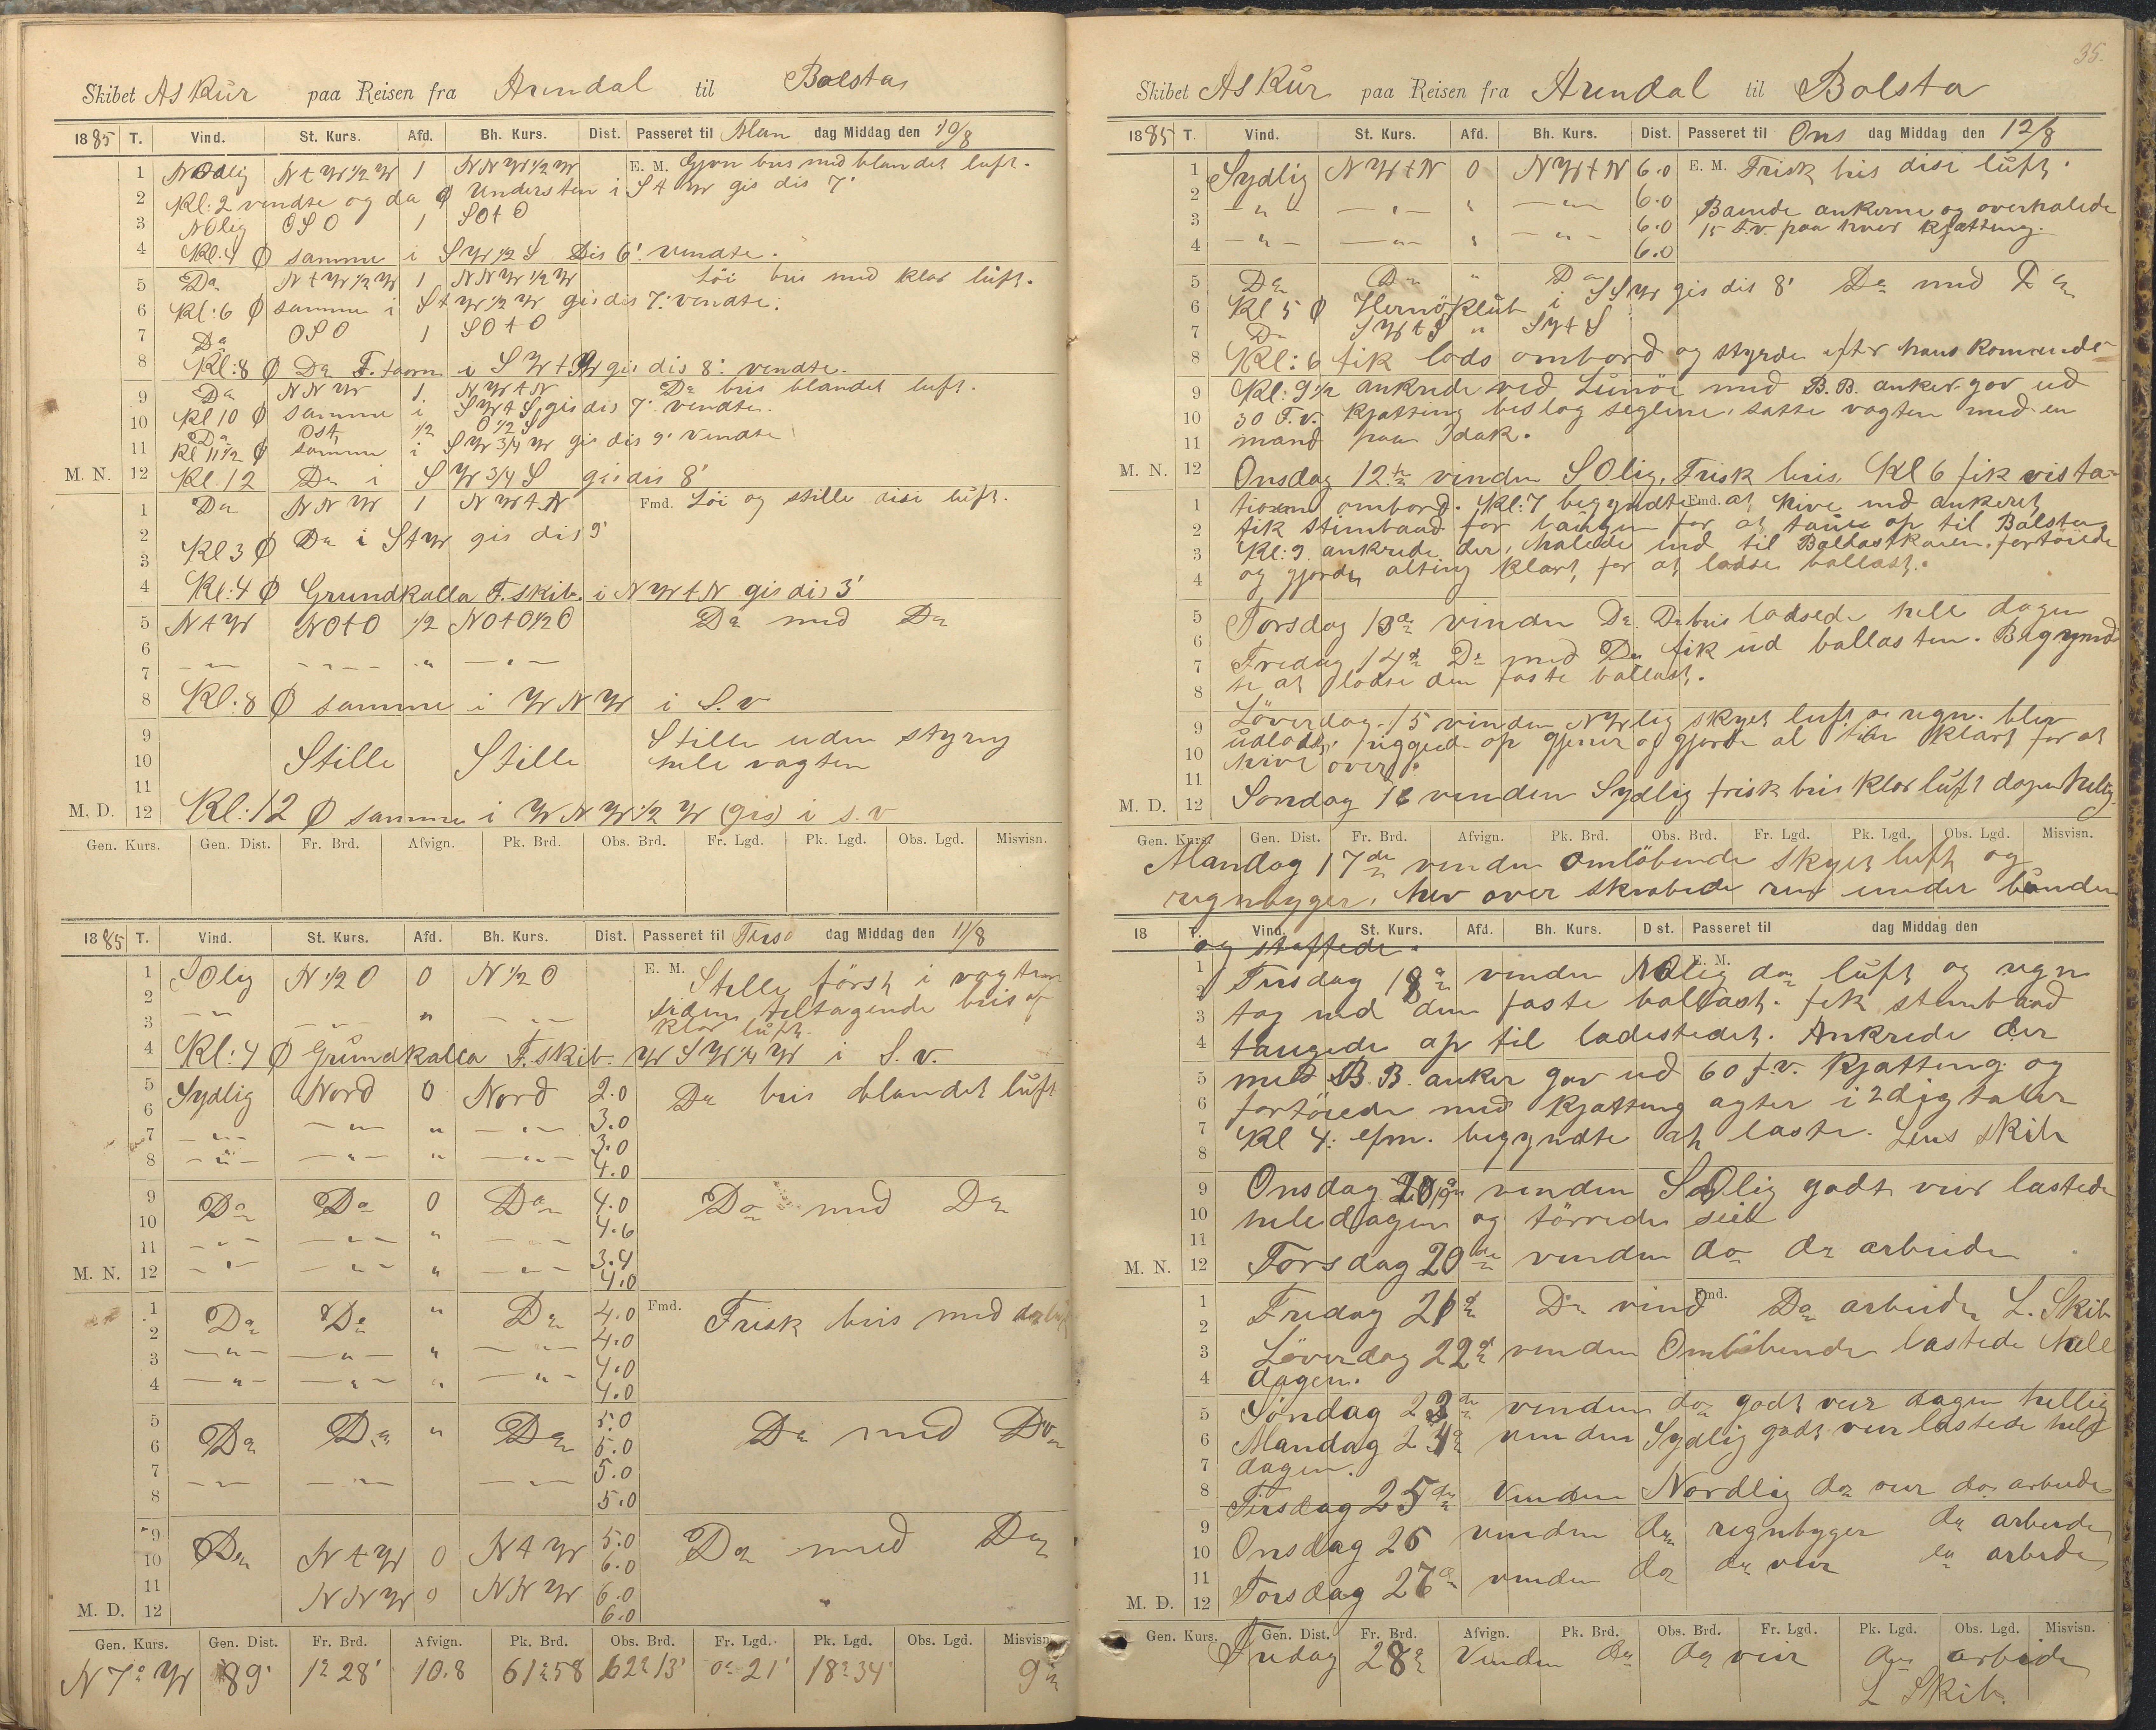 Skibet Askur paa Reisen fra Arendal til Bolsta
1885 T. Vind. St. Kurs. Afd. Bh. Kurs. Dist. Passeret til Man dag Middag den 10/8
1 NOdlig N t W 1/2 W 1 NNW 1/2 W E. M. Gjevn bris med blandet luft.
2 Kl: 2 vendte og da Ø Understen i S t W gis dis 7'
3 NOlig OSO 1 SO t O
4 Kl. 4 Ø samme i SW 1/2 S Dis 6' vendte.
5 Do N t W 1/2 W 1 NNW 1/2 W Löi bris med klar luft.
6 Kl: 6 Ø samme i S t W 1/2 W gis dis 7' vendte.
7 Do OSO 1 SO t O
8 Kl: 8 Ø Do F. taarn i SW t W gis dis 8' vendte.
9 Do NNW 1 NW t N Do bris blandet luft.
10 Kl 10 Ø samme i SW t S gis dis 7' vendte.
Do Ost 1/2 O 1/2 S
11 Kl 11 1/2 Ø samme i SW 3/4 W gis dis 9' vendte
M. N. 12 Kl. 12 Do i SW 3/4 S gis dis 8'
1 Do NNW 1 NW t N Fmd. Löi og stille disi luft.
2
3 Kl 3 Ø Do i S t W gis dis 9'
4 Kl: 4 Ø Grundkalla F. skib. i NW t N gis dis 3'
5 N t W NO t O 1/2 NO t O 1/2 O Do med Do
6
7
8 Kl: 8 Ø samme i WNW i S. v
9 Stille uden styring
10 Stille Stille hele vagten
11
M. D. 12 Kl: 12 Ø samme i WNW 1/2 W (gis) i s. v
Gen. Kurs. Gen. Dist. Fr. Brd. Afvign. Pk. Brd. Obs. Brd. Fr. Lgd. Pk. Lgd. Obs. Lgd. Misvisn.
1885 T. Vind. St. Kurs. Afd. Bh. Kurs. Dist. Passeret til Tirs dag Middag den 11/8
1 SOlig N 1/2 O 0 N 1/2 O E. M. Stille först i vagten
2 siden tiltagende bris af
3 klar luft.
4 Kl: 4 Ø Grundkalla F. skib. WSW 1/4 W i S. v.
5 Sydlig Nord 0 Nord 2.0 Do bris blandet luft
6 3.0
7 3.0
8 4.0
9 Do Do 0 Do 4.0 Do med Do
10 4.6
11 3.4
M. N. 12 4.0
1 Do Do " Do 4.0 Fmd. Frisk bris med do luft
2 4.0
3 4.0
4 4.0
5 Do Do " Do 5.0 Do med Do
6 5.0
7 5.0
8 5.0
9 Do N t W 0 N t W 5.0 Do med Do
10 6.0
11 NNW 0 NNW 6.0
M. D. 12 6.0
Gen. Kurs. Gen. Dist. Fr. Brd. Afvign. Pk. Brd. Obs. Brd. Fr. Lgd. Pk. Lgd. Obs. Lgd. Misvisn.
N 7° W 89' 1° 28' 10.8 61° 58 62° 13' 0° 21' 18° 34' 9°
35.
Skibet Askur paa Reisen fra Arendal til Bolsta
1885 T. Vind. St. Kurs. Afd. Bh. Kurs. Dist. Passeret til Ons dag Middag den 12/8
1 Sydlig NW t N 0 NW t N 6.0 E. M. Frisk bris disi luft.
2 6.0 ankerne og overhalede
3 6.0 15 F.v. paa hver kjætting.
4 6.0
5 Do Do " Do Do med Do
6 Kl 5 Ø Hernöklub i SSW gis dis 8'
7 Do SW t S " SW t S
8 Kl: 6 fik lods ombord og styrde efter hans komande
9 Kl: 9 1/2 ankrede ved Lunöe med B. B. anker gav ud
10 30 F. v. kjætting beslog seglene, satte vagten med en
11 mand paa dæk.
M. N. 12 Onsdag 12te vinden SOlig, Frisk bris, Kl 6 fik visita-
1 tionen ombord. Kl: 7 begyndte Fmd. at hive ind ankeret,
2 fik stimbaad for baugen for at taue op til Bolsta
3 Kl: 9 ankrede der, halede ind til Ballastkaien, fortöiede
4 og gjorde alting klart for at lodse ballast.
5 Torsdag 13de vinden Do Do bris lodsede hele dagen
6 Fredag 14de Do med Do fik ud ballasten. Begynd-
7 te at lodse den faste ballast.
8
9 Löverdag 15 vinden NWlig skyet luft og regn. blev
10 udlodset, riggede op gjener og gjorde al ting klart for at
11 hive over.
M. D. 12 Söndag 16 vinden Sydlig frisk bris klar luft dagen helig.
Gen. Kurs. Gen. Dist. Fr. Brd. Afvign. Pk. Brd. Obs. Brd. Fr. Lgd. Pk. Lgd. Obs. Lgd. Misvisn.
Mandag 17de vinden omlöbende skyet luft og
regnbyger, hev over skrabede ren under bunden
18 T. Vind. St. Kurs. Afd. Bh. Kurs. Dist. Passeret til dag Middag den
og
1 Tirsdag 18de vinden NOlig E. M. do luft og regn
2 tog ind den faste ballast. fik stimbaad
3
4 taugede op til ladestedet. Ankrede der
5 med B. B. anker gav ud 60 f.v. kjætting og
6 fortöiede med kjætting agter i 2
7 Kl 4: efm. begyndte at laste. Lens skib
8
9 Onsdag 19de vinden SOlig godt veir lastede
10 hele dagen og törrede seil
11
M. N. 12 Torsdag 20de vinden do do arbeide
1 Fredag 21de Do vind Fmd. Do arbeide L. Skib
2
3 Löverdag 22de vinden Omlöbende lastede hele
4 dagen.
5 Söndag 23de vinden do godt veir dagen hellig
6 Mandag 24de vinden Sydlig godt veir lastede hele
7 dagen.
8 Tirsdag 25de Vinden Nordlig do veir do arbeide
9
10 Onsdag 26 vinden do regnbyger do arbeide
11
M. D. 12 Torsdag 27de vinden do do veir do arbeide
Gen. Kurs. Gen. Dist. Fr. Brd. Afvign. Pk. Brd. Obs. Brd. Fr. Lgd. Pk. Lgd. Obs. Lgd. Misvisn.
Fredag 28de Vinden do do veir do arbeide
L Skib.